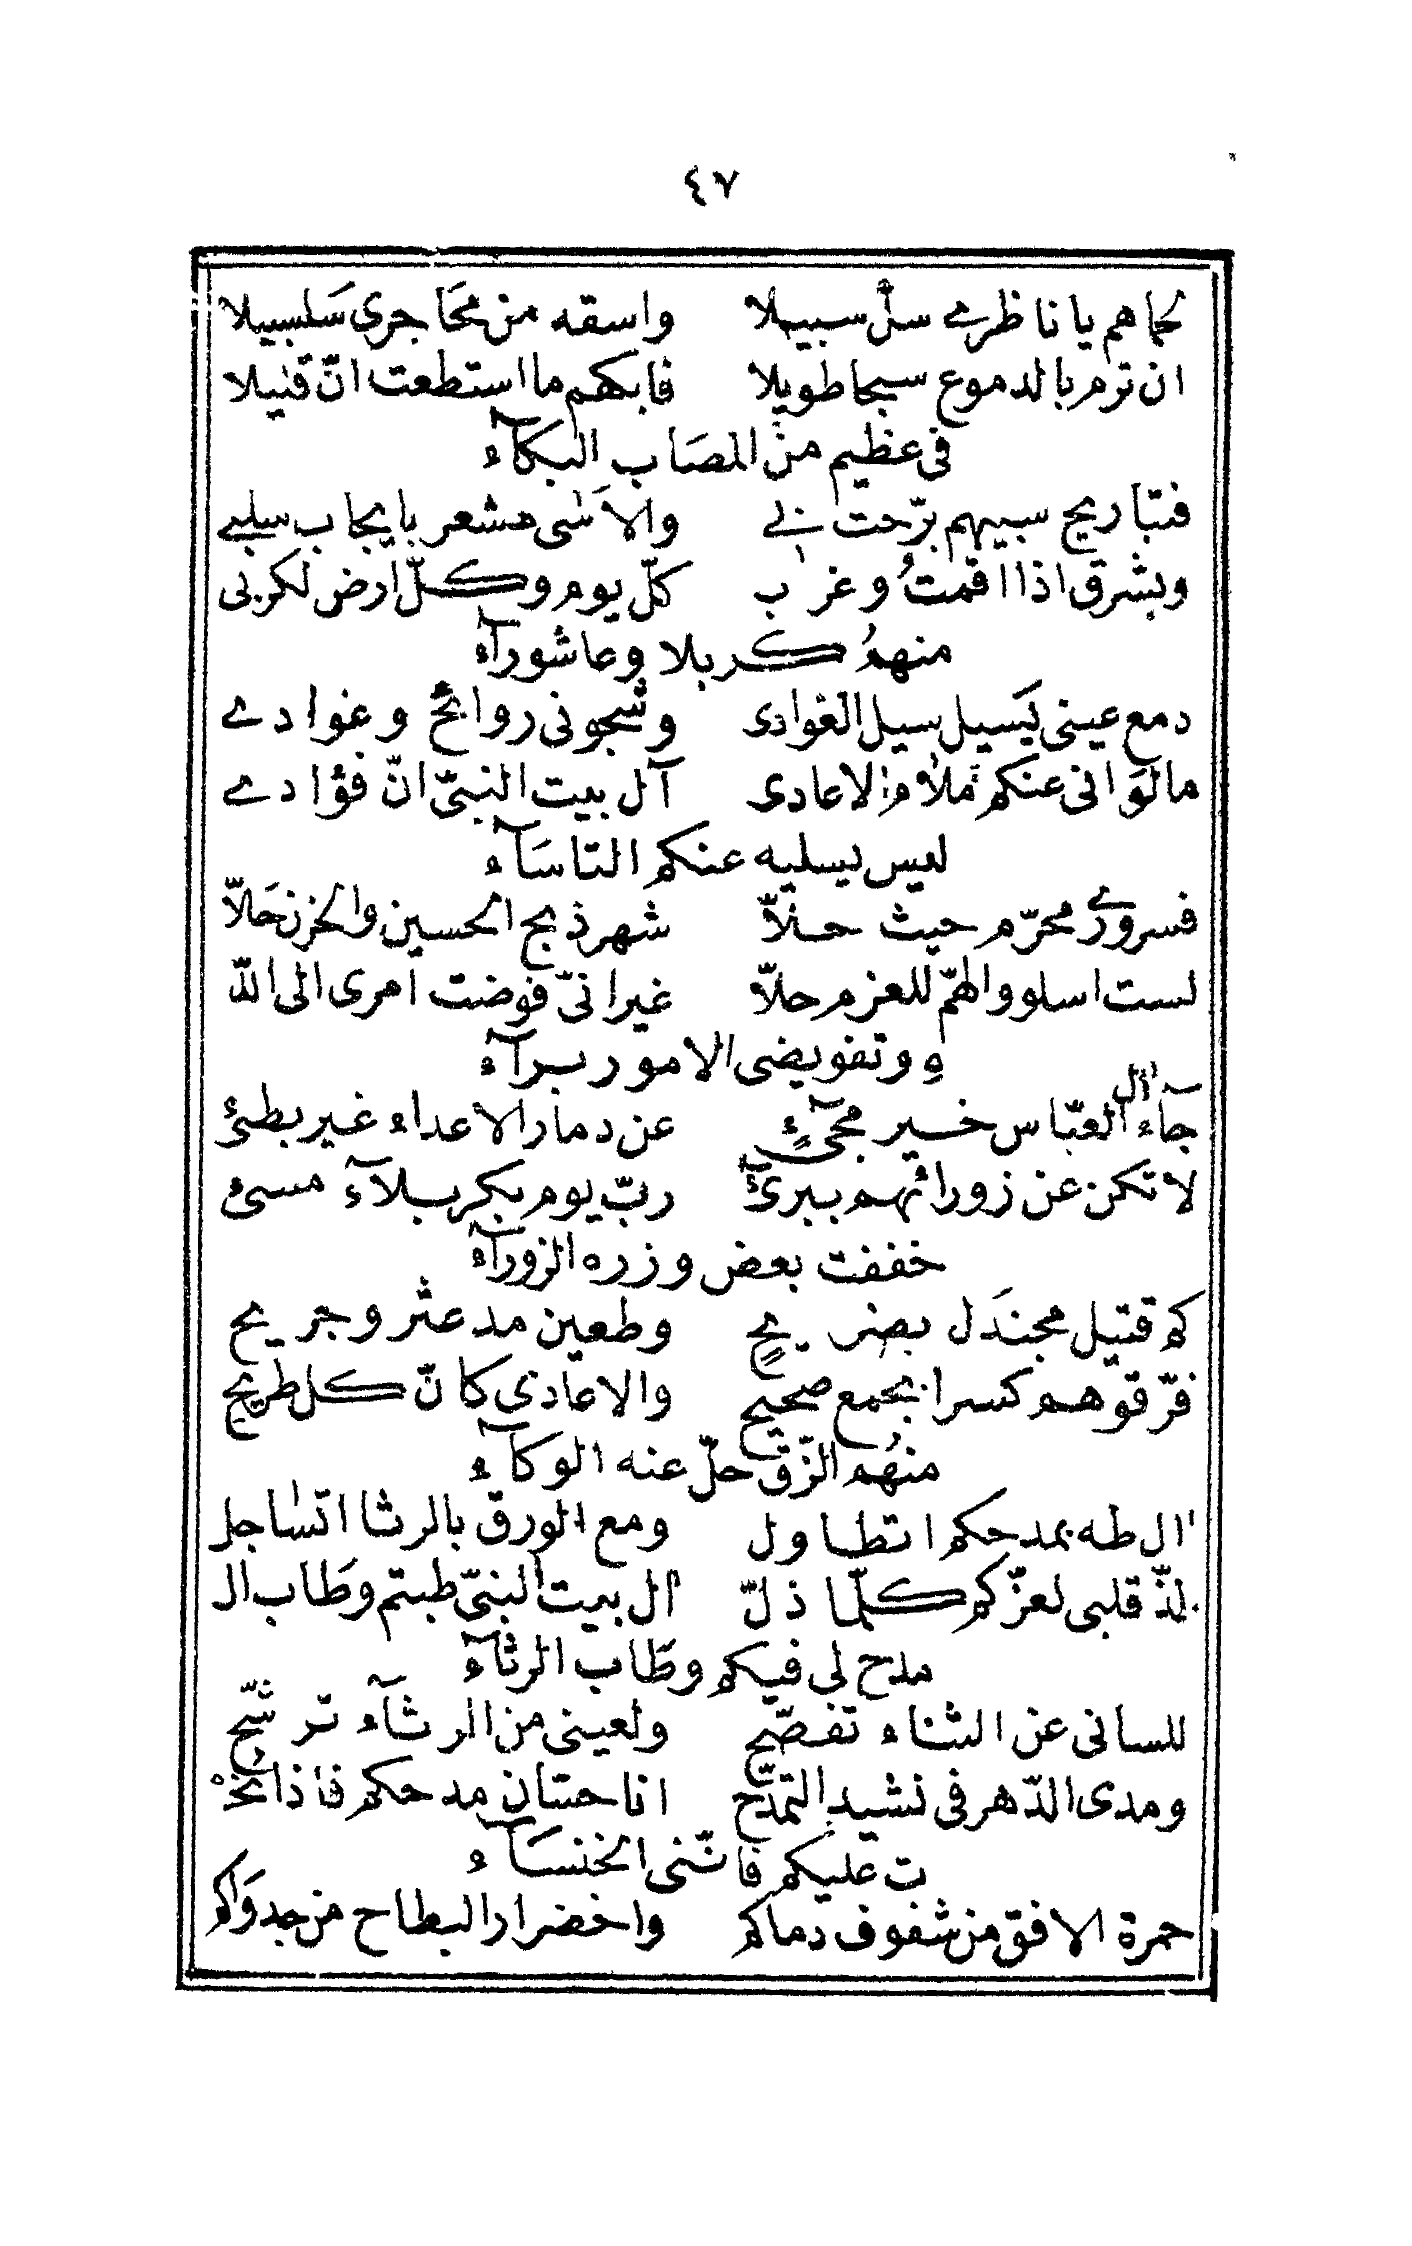 ٤٧
لحماهم يا ناظري سل سبيلا واسقه من محاجرى سلسبيلا
ان ترم بالدموع سبحا طويلا فابكهم ما استطعت ان قليلا
فى عظيم من المصاب البكآء
فتباريح سبيهم برّحت بي والاسى مشعر بايجاب سلبي
وبشرق اذا اقمتُ وغرب كلّ يوم وكلّ ارض لكربى
منهمُ كربلا وعاشورآء
دمع عينى يَسيل سيل الغوادى وشجونى روائح وغوادي
مالوَانى عنكم ملام الاعادى آل بيت النبىّ انّ فؤادي
ليس يسليه عنكم التاسآء
فسروري محرّم حيث حلّا شهر ذبح الحسين والحزن حَلّا
لست اسلو والهمّ للعزم حلّا غير انىّ فوضت امرى الى اللّه
ه وتفويضى الامور برآء
جآء آل العبّاس خير مجىءٍ عن دمار الاعداء غير بطئ
لا تكن عن زورائهم ببرىء ربّ يوم بكربلآء مسىء
خففت بعض وزره الزورآء
كم قتيل مجندَل بضريحٍ وطعين مدعثر وجريح
فرّقوهم كسرا بجمع صحيح والاعادى كانّ كل طريح
منهُم الزّق حلّ عنه الوكآء
آل طه بمدحكم اتطاول ومع الورق بالرثا اتساجل
لذّ قلبى لعزّكم كلّما ذلّ آل بيت النبىّ طبتم وطاب ال
مدح لى فيكم وطاب الرثآء
للسانى عن الثناء تفصّح ولعينى من الرثآء ترشّح
ومدى الدّهر فى نشيد التمدّح انا حسّان مدحكم فاذا نحْ
ت عليكم فانّنى الخنسآء
حمرة الافق من شفوف دماكم واخضرار البطاح من جدواكم